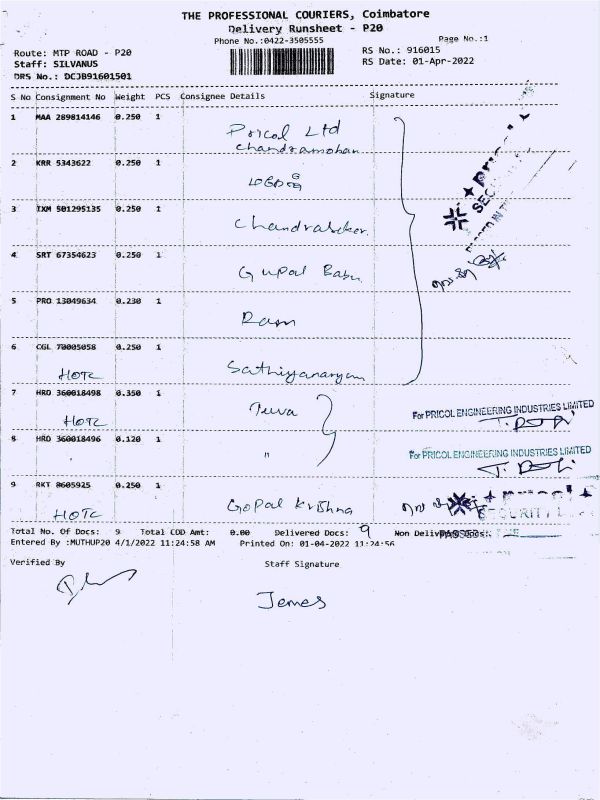 THE PROFESSIONAL COURIERS, Coimbatore
Delivery Runsheet - P20
Phone No.:0422-3505555
Page No.:1
Route: MTP ROAD - P20
RS No.: 916015
Staff: SILVANUS
RS Date: 01-Apr-2022
DRS No.: DCJB91601501
S No Consignment No Weight PCS Consignee Details Signature
1 MAA 289814146 0.250 1 Pricol Ltd
Chandramohan
2 KRR 5343622 0.250 1
3 TXM 501295135 0.250 1 Chandrasekar.
4 SRT 67354623 0.250 1 Gupal Babu
5 PRO 13049634 0.230 1 Ram
6 CGL 70005058 0.250 1
HOTC Sathiyanarayan
7 HRO 360018498 0.350 1 Jeeva
HOTC
For PRICOL ENGINEERING INDUSTRIES LIMITED
8 HRO 360018496 0.120 1 "
For PRICOL ENGINEERING INDUSTRIES LIMITED
9 RKT 8605925 0.250 1
HOTC Gopal Krishna
SECURITY
Total No. Of Docs: 9 Total COD Amt: 0.00 Delivered Docs: 9 Non Delivered Docs:
Entered By :MUTHUP20 4/1/2022 11:24:58 AM Printed On: 01-04-2022 11:24:56
Verified By Staff Signature
James